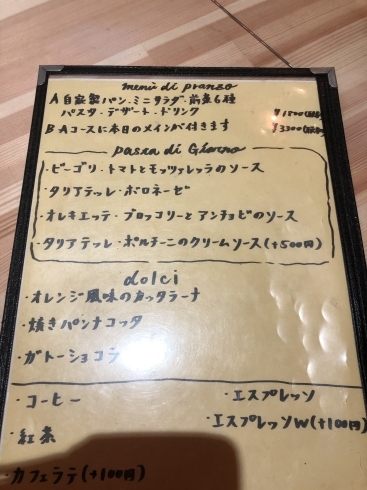 menù di pranzo
A 自家製パン・ミニサラダ・前菜6種
パスタ・デザート・ドリンク
B Aコースに本日のメインが付きます ¥3300
pasta di Giorno
・ビーゴリ・トマトとモッツァレッラのソース
・タリアテッレ・ボロネーゼ
・オレキエッテ・ブロッコリーとアンチョビのソース
・タリアテッレ・ポルチーニのクリームソース(+500円)
dolci
・オレンジ風味のカッタラーナ
・焼きパンナコッタ
・ガトーショコラ
・コーヒー
・紅茶
・カフェラテ(+100円)
・エスプレッソ
・エスプレッソW(+100円)